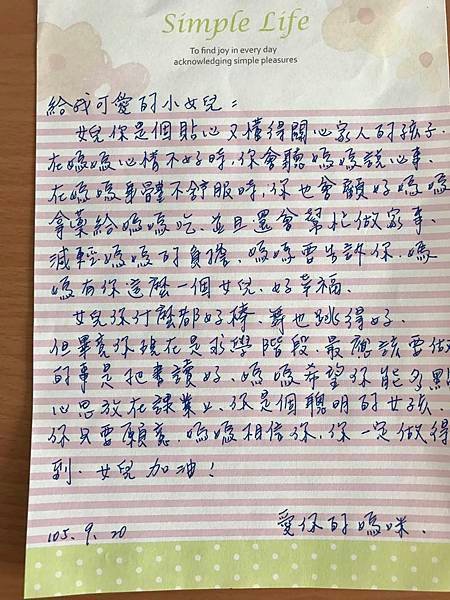 Simple Life
To find joy in every day
acknowledging simple pleasures
給我可愛的小女兒：
女兒你是個貼心又懂得關心家人的孩子.
在媽媽心情不好時,你會聽媽媽談心事.
在媽媽身體不舒服時,你也會顧好媽媽
拿藥給媽媽吃、並且還會幫忙做家事、
減輕媽媽的負擔、媽媽要告訴你、媽
媽有你這麼一個女兒、好幸福.
女兒你什麼都好棒、舞也跳得好.
但畢竟你現在是求學階段、最應該要做
的事是把書讀好、媽媽希望你能多點
心思放在課業上、你是個聰明的女孩、
你只要願意、媽媽相信你、你一定做得
到、女兒加油！
愛你的媽咪.
105.9.20